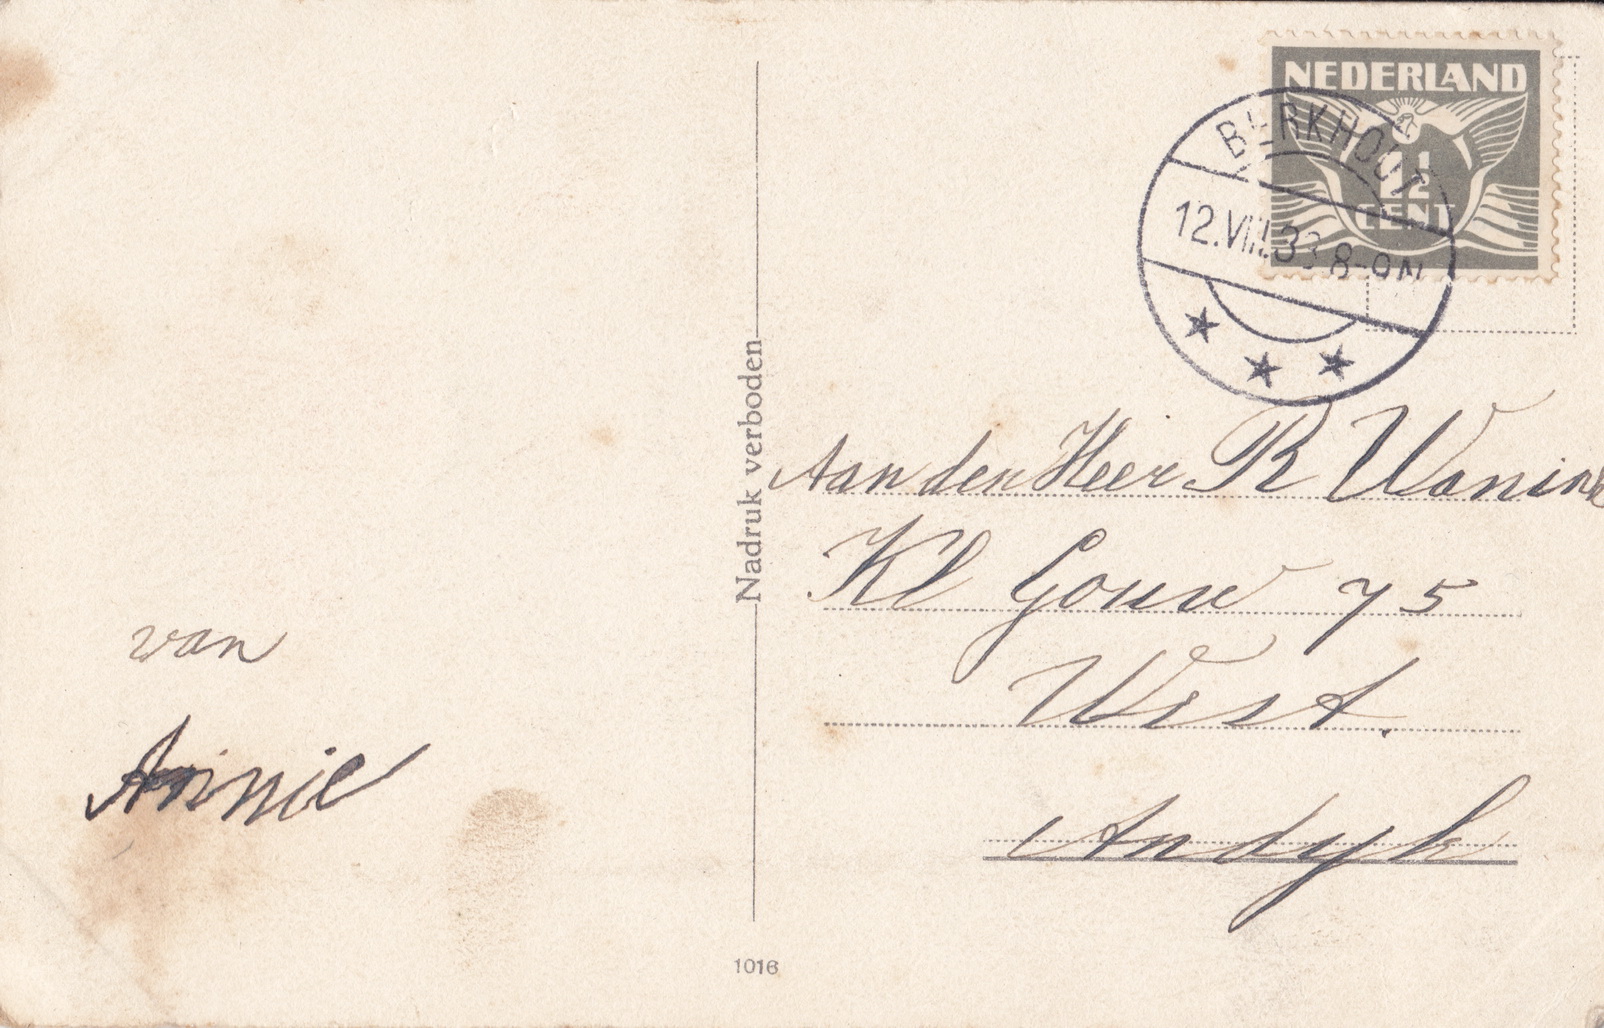 NEDERLAND
1½
CENT
BERKHOUT
12.VIII.33 8-9N
Nadruk verboden
Aan den Heer R Wanink
Kl Gouw 75
West.
Andyk
van
Annie
1016